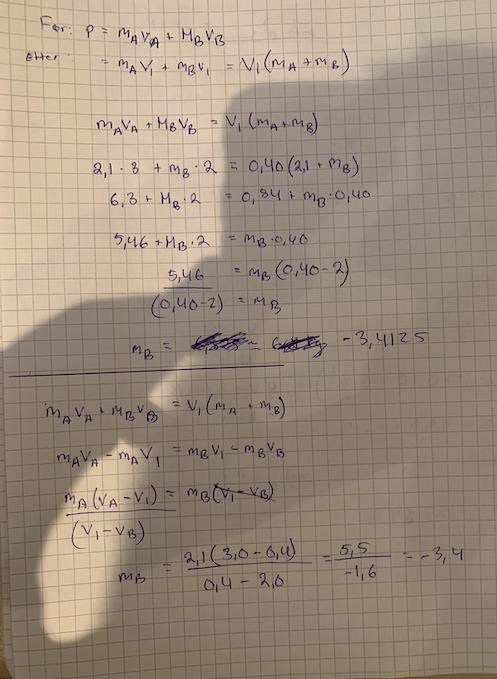 Før: p = mAVA + MBVB
etter: = mAV1 + mBV1 = V1(mA + mB)
mAVA + MBVB = V1(mA + mB)
2,1 · 3 + mB · 2 = 0,40(2,1 + mB)
6,3 + MB · 2 = 0,84 + mB · 0,40
5,46 + MB · 2 = mB · 0,40
5,46 = mB(0,40 - 2)
(0,40 - 2) = mB
mB = - 3,4125
mAVA + MBVB = V1(mA + mB)
mAVA - mAV1 = mBV1 - mBVB
mA(VA - V1) = mB(V1 - VB)
(V1 - VB)
mB = 2,1(3,0 - 0,4) / 0,4 - 2,0 = 5,5 / -1,6 = -3,4